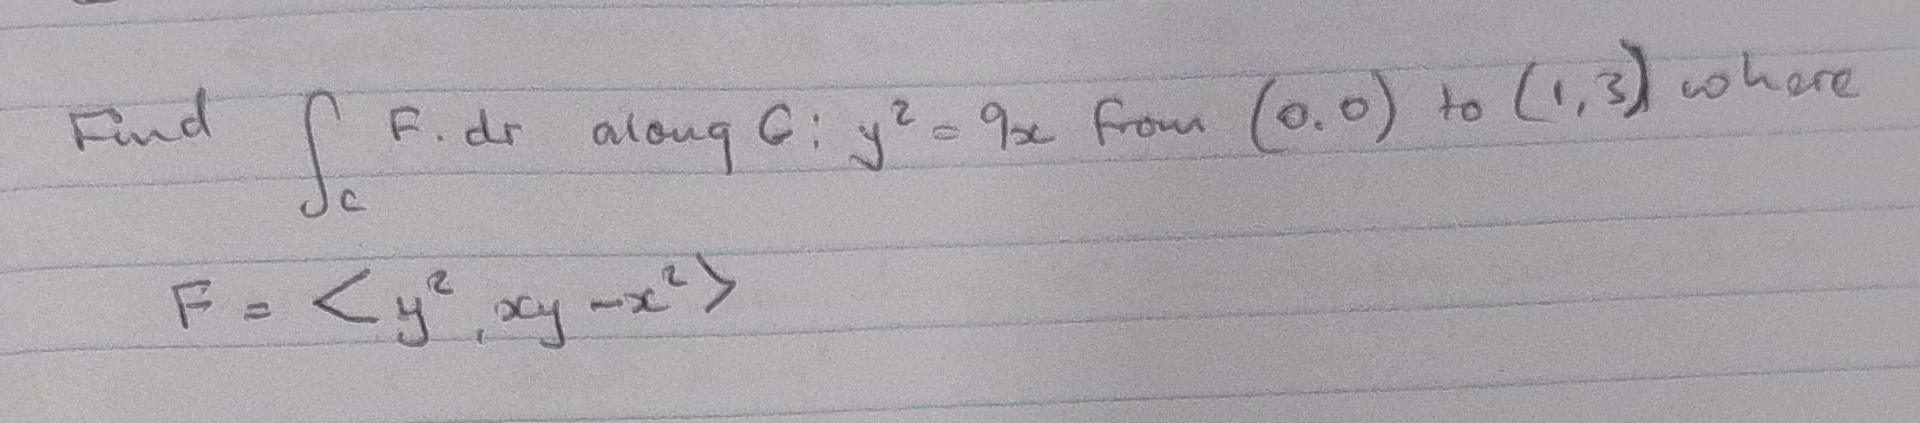 Find ∫_C F. dr along C: y² = 9x from (0,0) to (1,3) where
F = <y², xy - x²>